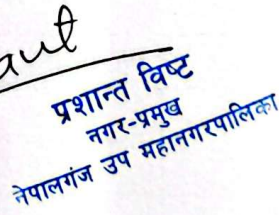 प्रशान्त विष्ट
नगर-प्रमुख
नेपालगंज उप महानगरपालिका